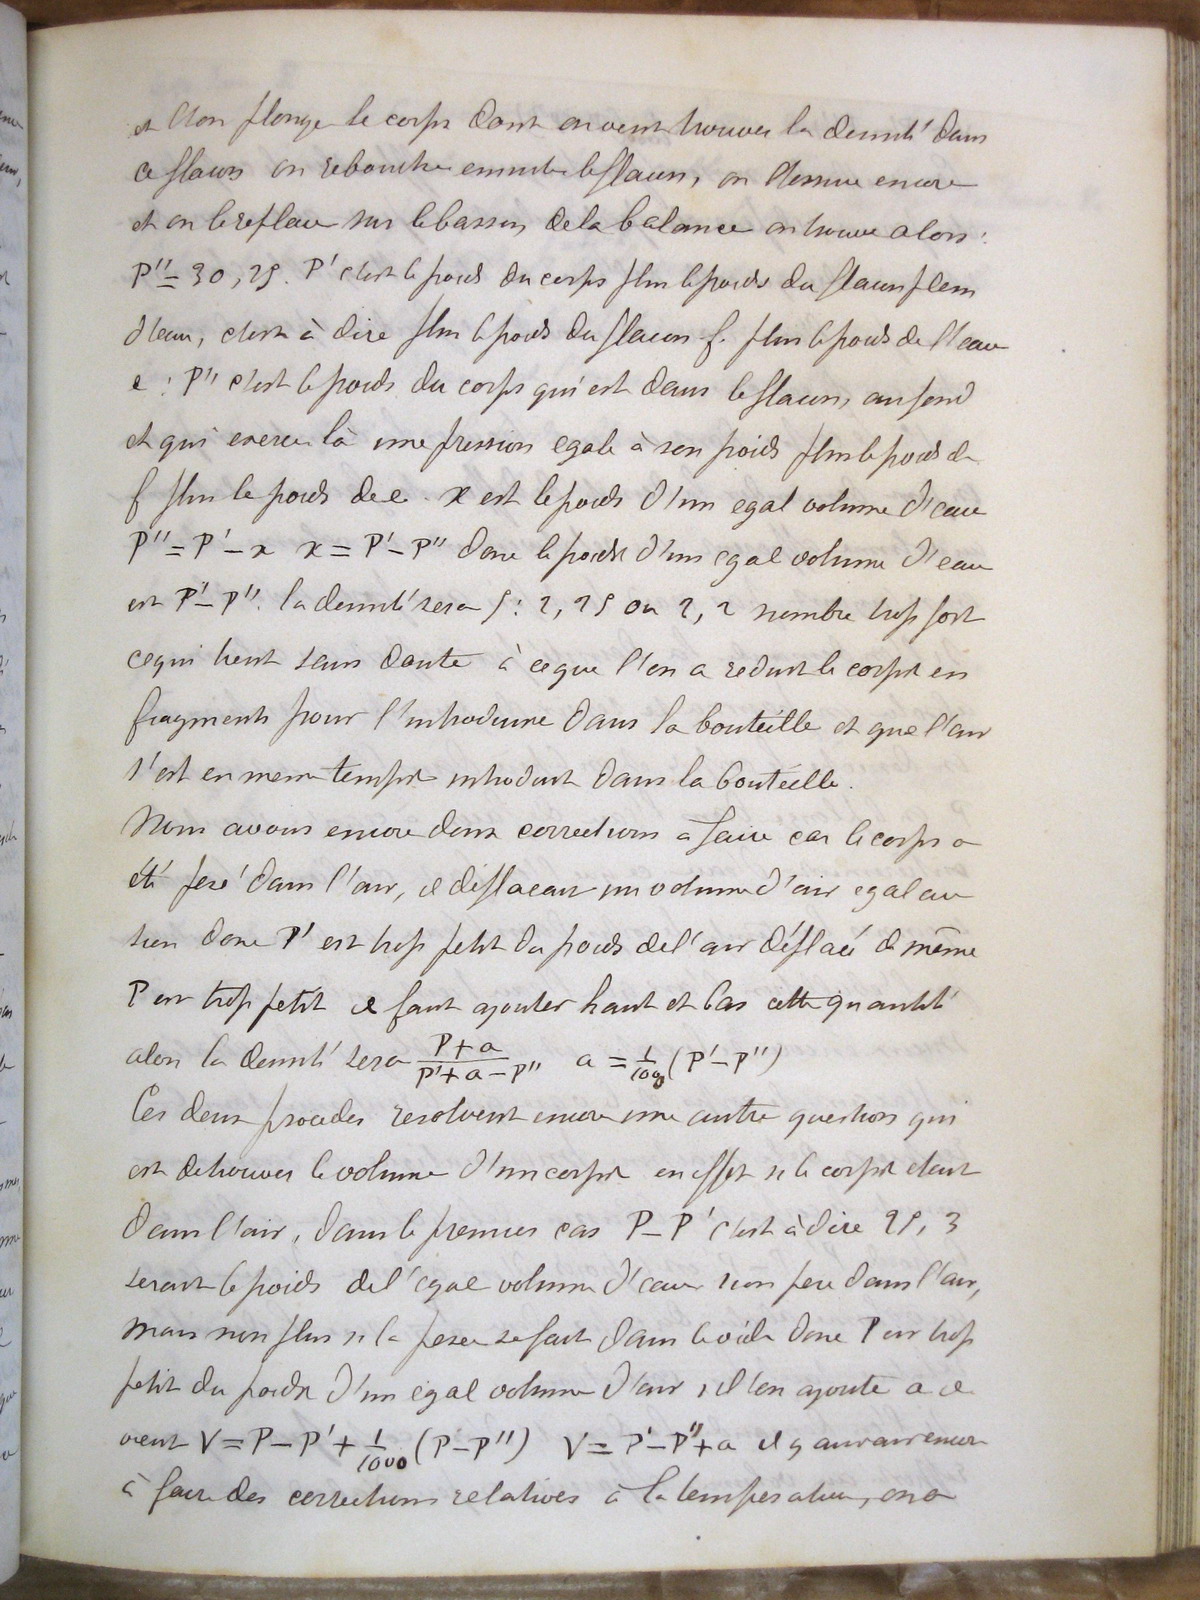 et l'on plonge le corps dont on veut trouver la densité dans
ce flacon on rebouche ensuite le flacon, on l'essuie encore
et on le replace sur le bassin de la balance on trouve alors :
P''= 30,25. P' c'est le poids du corps plus le poids du flacon plein
d'eau, c'est à dire plus le poids du flacon f. plus le poids de l'eau
e : P'' c'est le poids du corps qui est dans le flacon, au fond
et qui exerce là une pression egale à son poids plus le poids de
f plus le poids de e. x est le poids d'un egal volume d'eau
P''=P'-x x=P'-P'' donc le poids d'un egal volume d'eau
est P'-P''. la densité sera 5 : 2,25 ou 2,2 nombre trop fort
ce qui tient sans doute à ce que l'on a reduit le corps en
fragments pour l'introduire dans la bouteille et que l'air
s'est en meme temps introduit dans la bouteille.
Nous avons encore deux corrections a faire car le corps a
été pesé dans l'air, il déplacait un volume d'air egal au
sien donc P' est trop petit du poids de l'air déplacé de même
P est trop petit il faut ajouter haut et bas cette quantité
alors la densité sera P+a / P'+a-P'' a = 1/1000 (P'-P'')
Ces deux procedes resolvent encore une autre question qui
est de trouver le volume d'un corps en effet si le corps etait
dans l'air, dans le premier cas P-P' c'est à dire 25,3
serait le poids de l'egal volume d'eau si on pese dans l'air,
mais non plus si la pesee se fait dans le vide donc P est trop
petit du poids d'un egal volume d'air si l'on ajoute a il
vient V=P-P'+1/1000 (P-P'') V=P'-P''+a il y aurait encore
à faire des corrections relatives à la temperature, on a